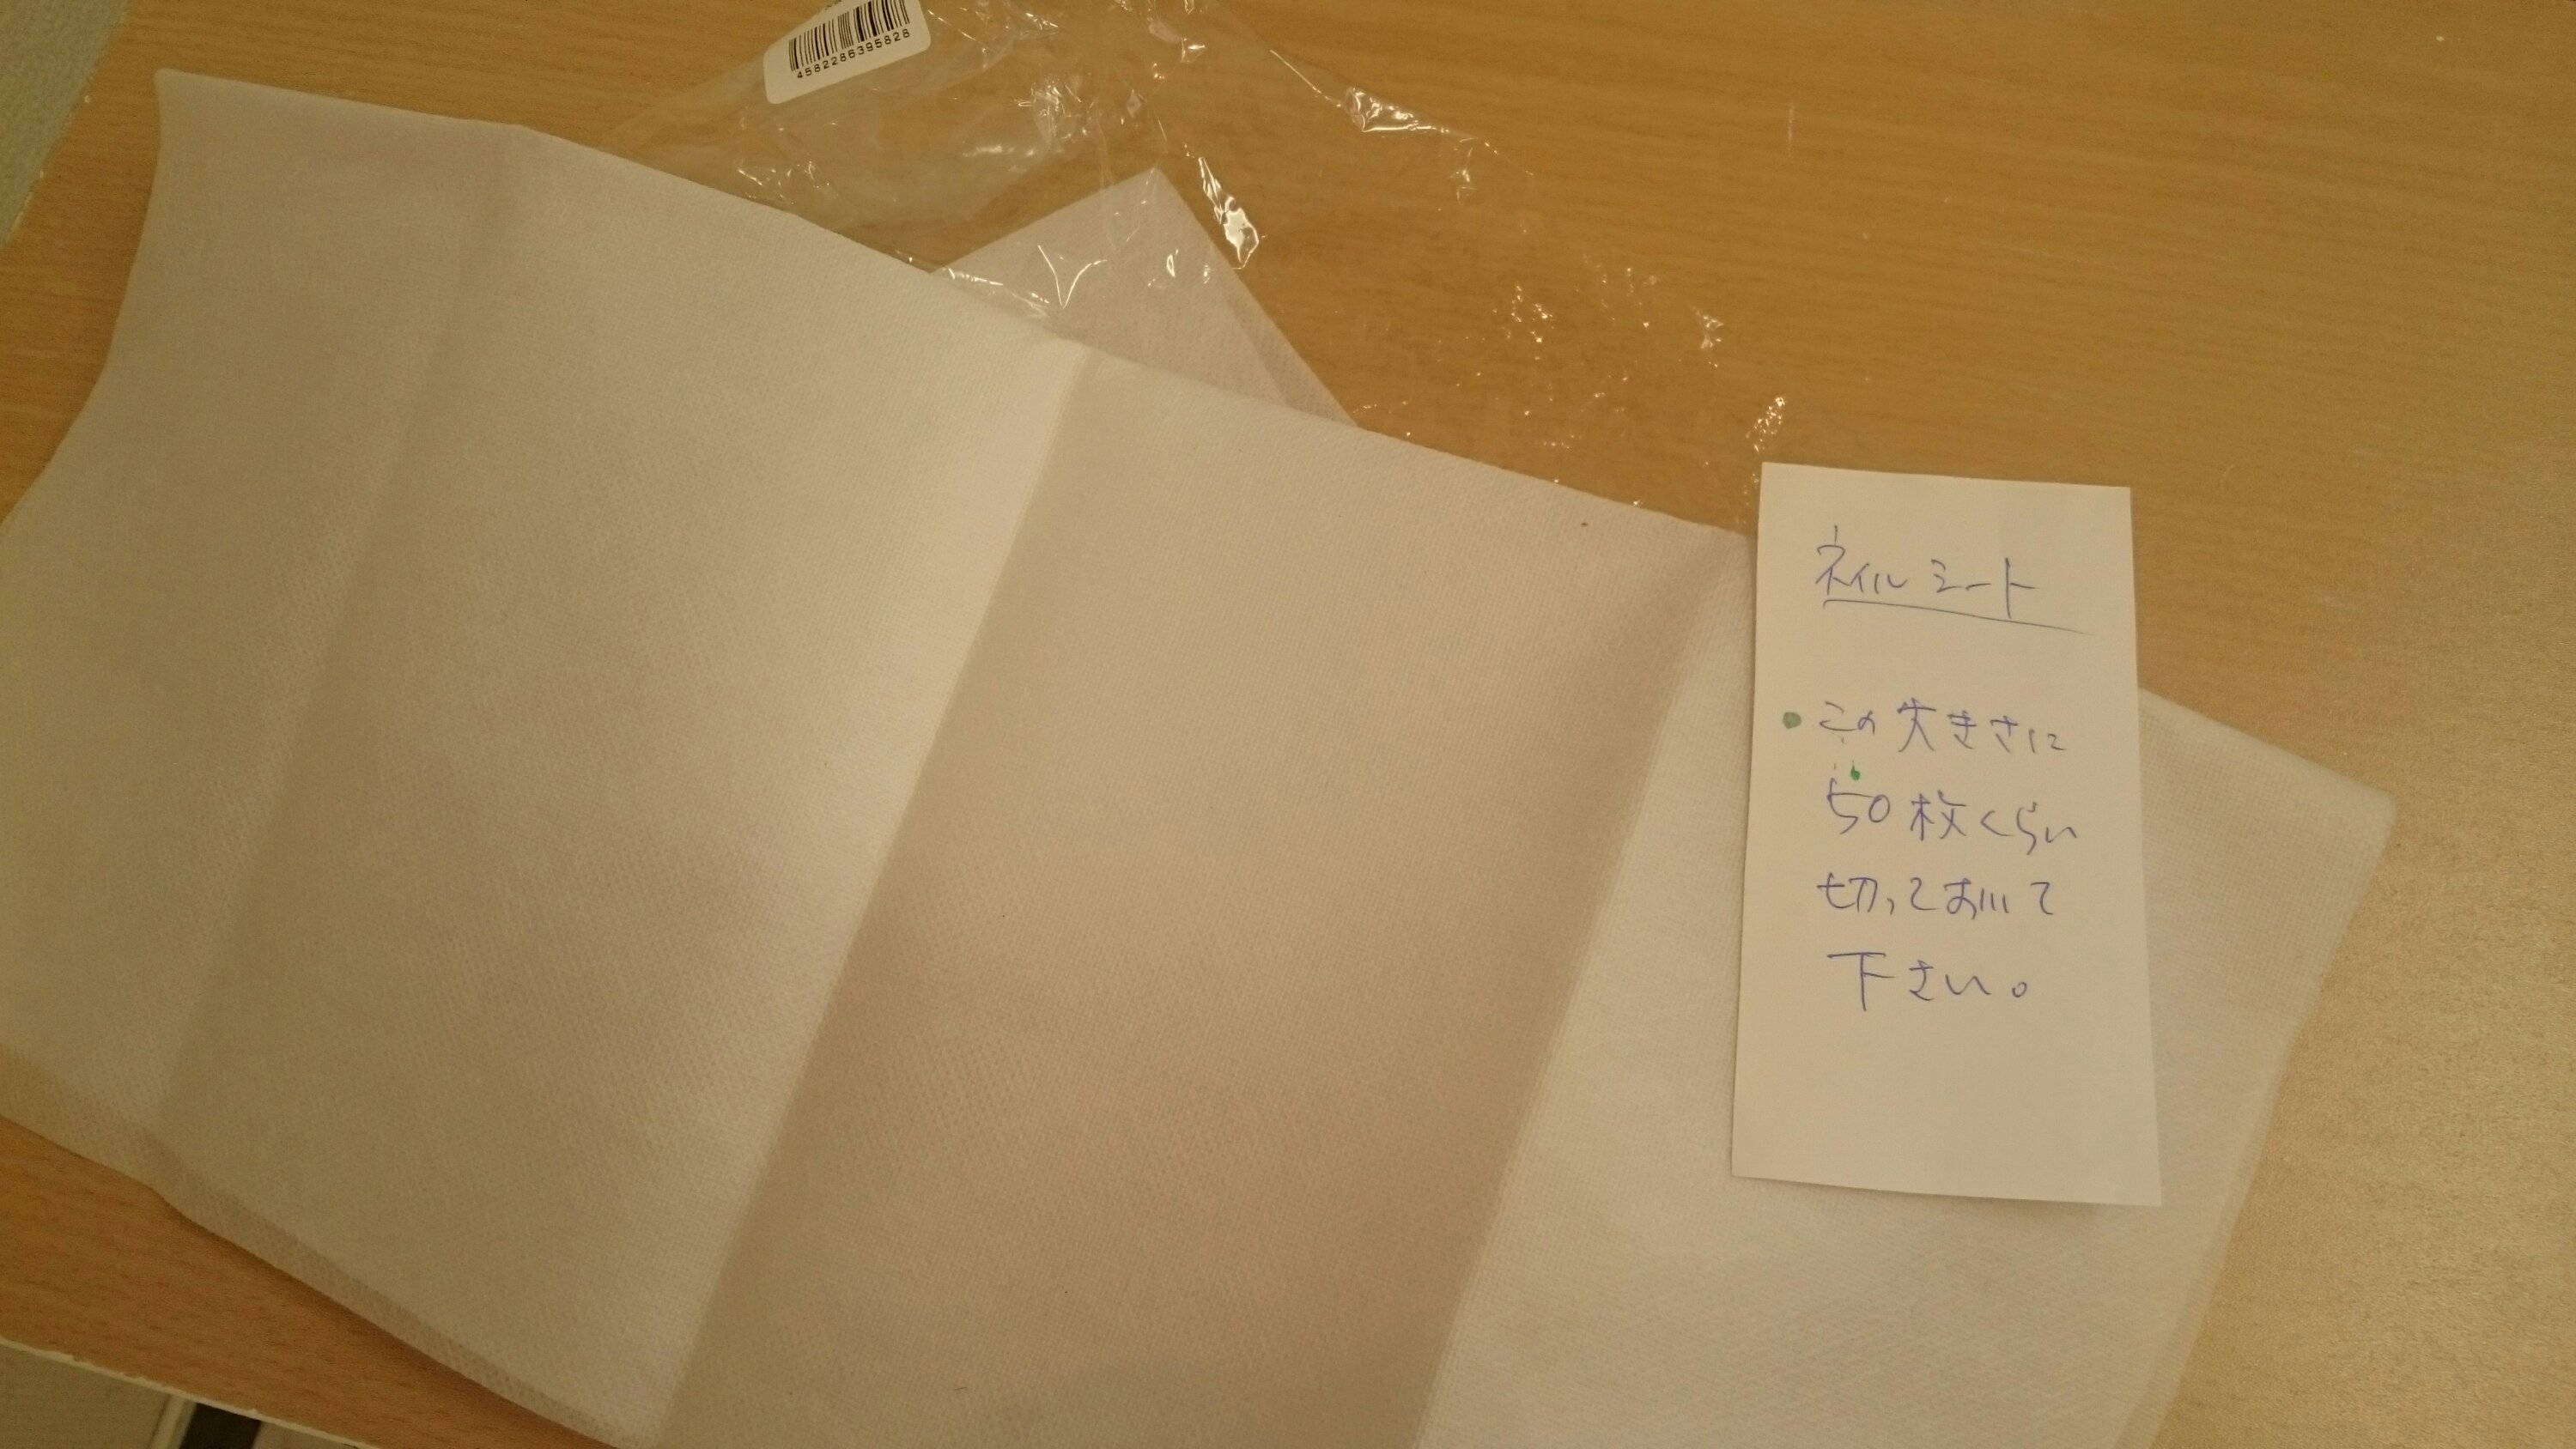 4582286395828
ネイルシート
・この大きさに
50枚くらい
切っておいて
下さい。